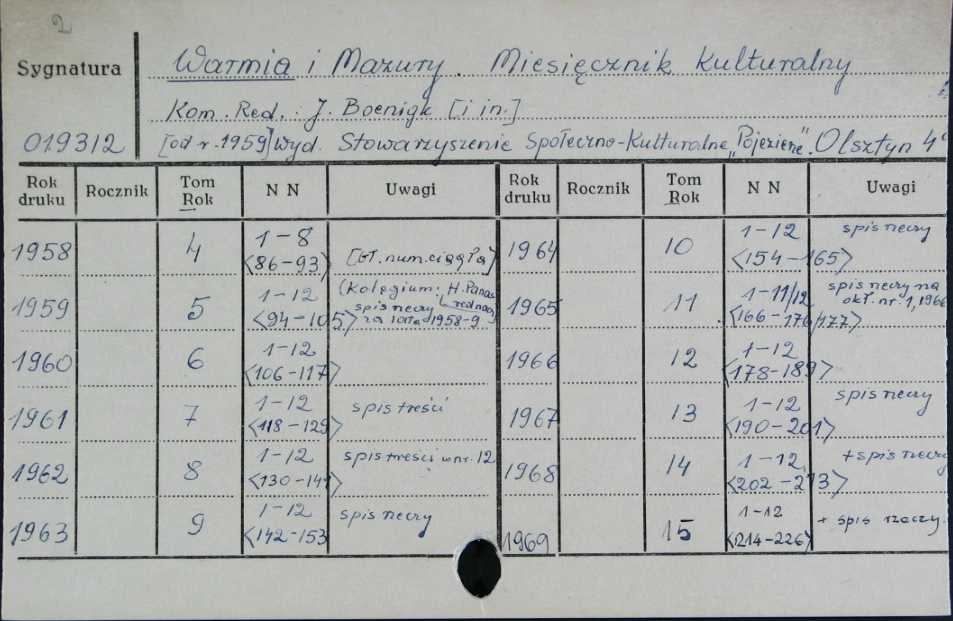 2
Sygnatura
Warmia i Mazury. Miesięcznik kulturalny
Kom. Red. : J. Boenigk [i in.]
019312
[od r. 1959] Wyd. Stowarzyszenie Społeczno-Kulturalne „Pojezierze". Olsztyn 4°
Rok druku Rocznik Tom Rok NN Uwagi Rok druku Rocznik Tom Rok NN Uwagi
1958 4 1-8 <86-93> [Gł. num. ciągła] 1964 10 1-12 <154-165> spis rzeczy
1959 5 1-12 <94-105> (Kolegium: H. Panas red nacz spis rzeczy za lata 1958-9 1965 11 1-11/12 <166-176/177> spis rzeczy na okł. nr. 1, 1966
1960 6 1-12 <106-117> 1966 12 1-12 <178-189>
1961 7 1-12 <118-129> spis treści 1967 13 1-12 <190-201> spis rzeczy
1962 8 1-12 <130-141> spis treści w nr. 12 1968 14 1-12 <202-213> + spis rzeczy
1963 9 1-12 <142-153 spis rzeczy 1969 15 1-12 <214-226> + spis rzeczy